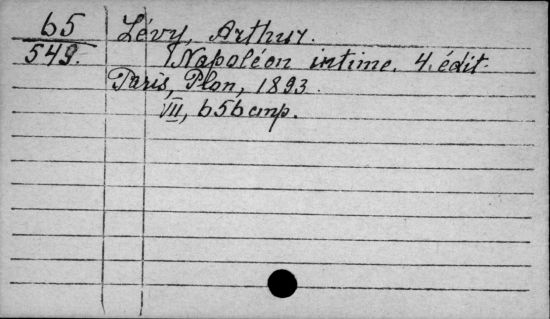 65 Lévy, Arthur.
549. Napoléon intime. 4. édit.
Paris, Plon, 1893.
VII, 656 стр.